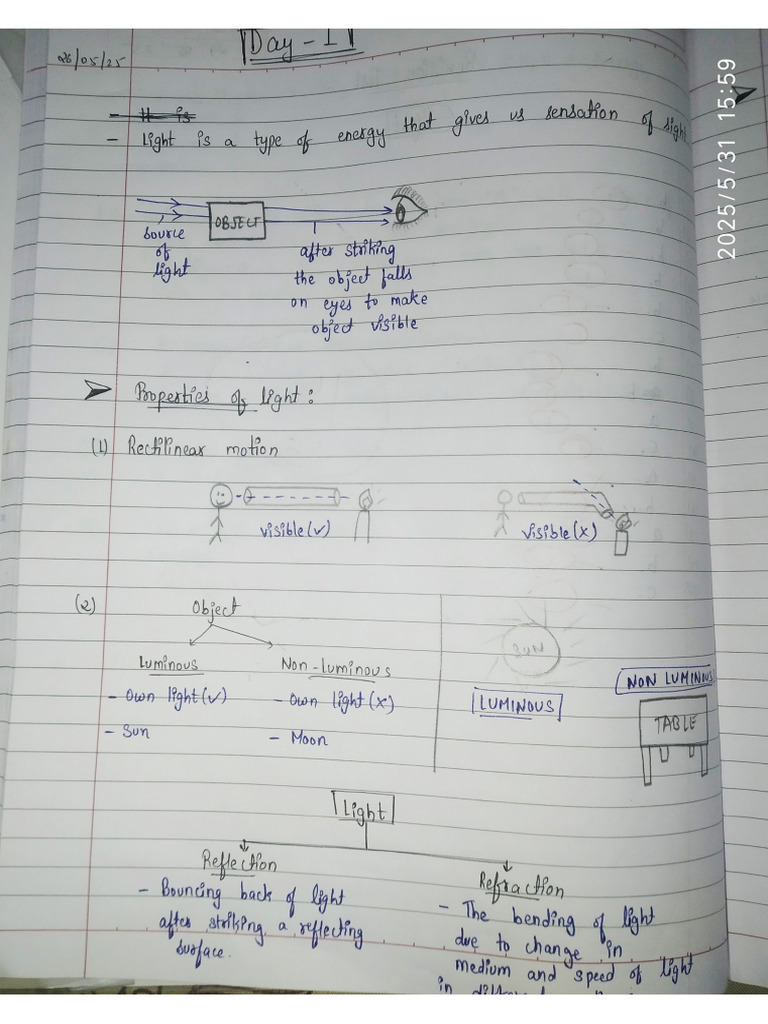 Day - 1
26/05/25
- It is
- Light is a type of energy that gives us sensation of sight
OBJECT
source
of
light
after striking
the object falls
on eyes to make
object visible
Properties of light :
(1) Rectilinear motion
visible(✓)
visible(x)
(2) Object
Luminous
Non-luminous
- Own light(✓)
- Own light(x)
- Sun
- Moon
SUN
LUMINOUS
NON LUMINOUS
TABLE
Light
Reflection
- Bouncing back of light
after striking a reflecting
surface.
Refraction
- The bending of light
due to change in
medium and speed of light
in
2025/5/31 15:59